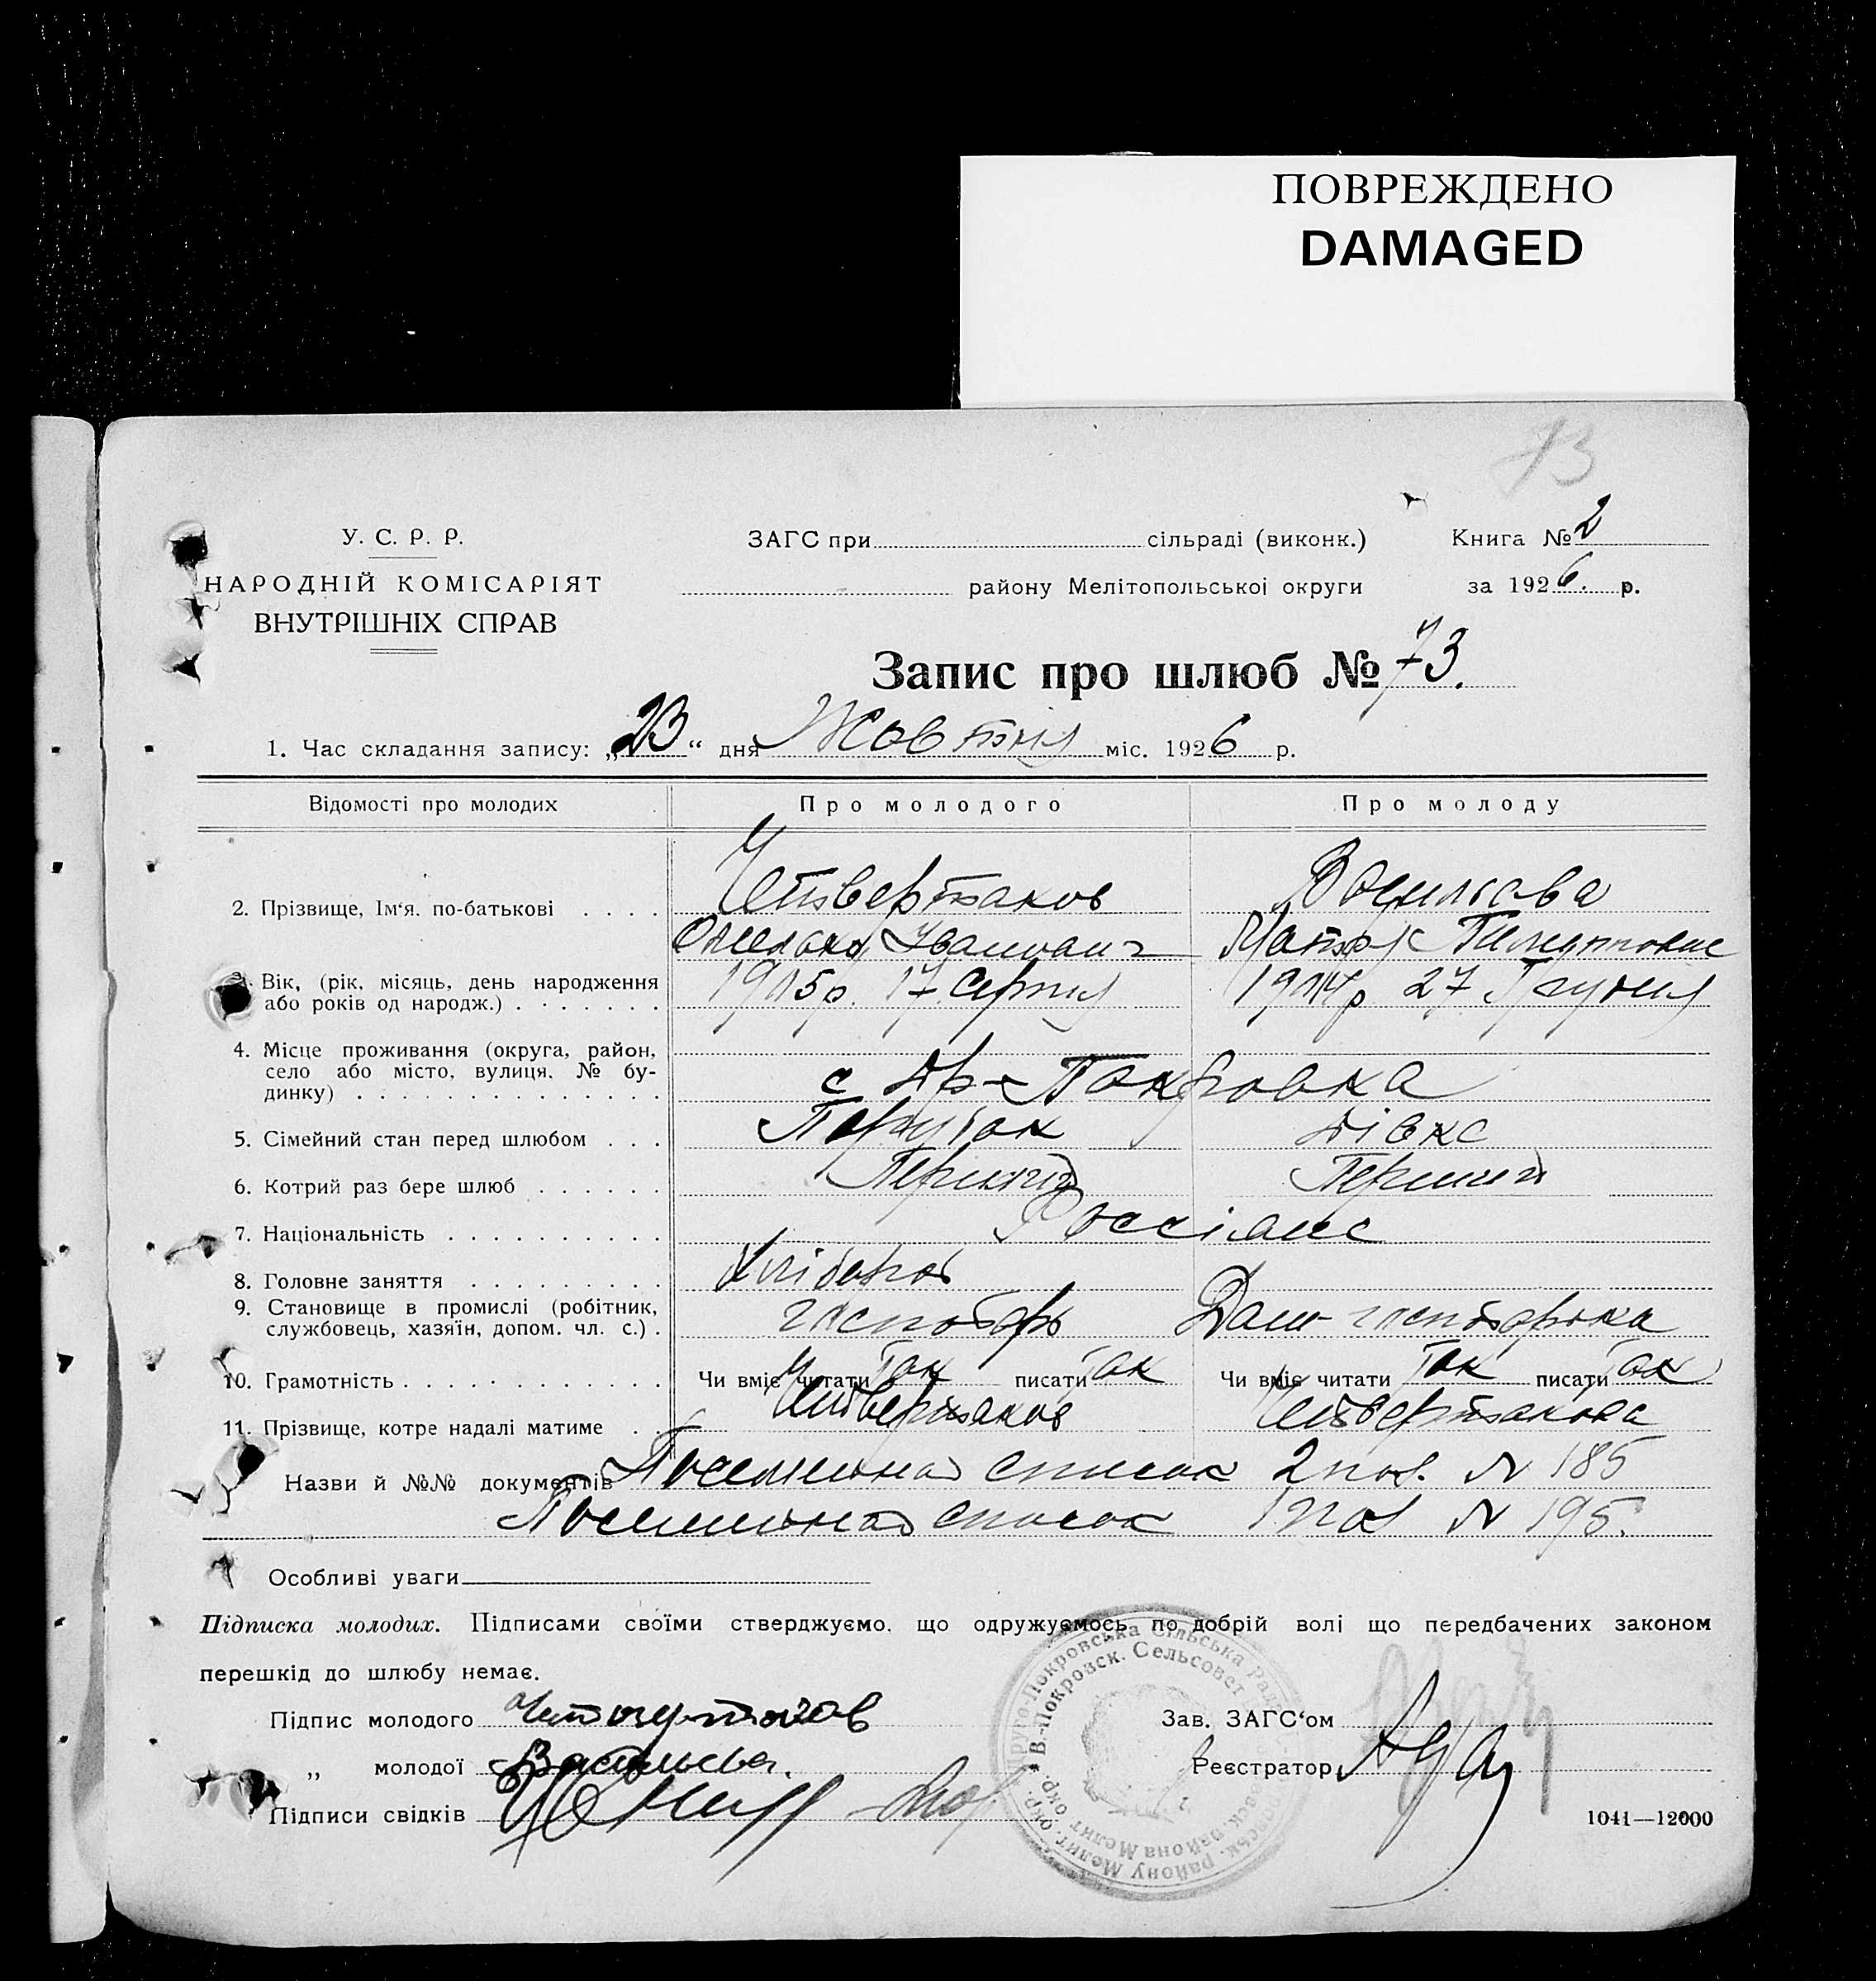 ПОВРЕЖДЕНО
DAMAGED
73
У. С. Р. Р.
НАРОДНІЙ КОМІСАРІЯТ
ВНУТРІШНІХ СПРАВ
ЗАГС при сільраді (виконк.)
району Мелітопольської округи
Книга № 2
за 1926. р.
Запис про шлюб № 73.
1. Час складання запису: „23“ дня Жовтня міс. 1926 р.
Відомості про молодих Про молодого Про молоду
2. Прізвище, Ім‘я. по-батькові . . . . Четвертаков
Іванович
3. Вік, (рік, місяць, день народження 17 Серпня 27 Грудня
або років од народж.) . . . . . . .
4. Місце проживання (округа, район,
село або місто, вулиця, № бу- с Др-Покровка
динку) . . . . . . . . . . . . . .
5. Сімейний стан перед шлюбом . . . Парубок Дівка
6. Котрий раз бере шлюб . . . . . . Перший Перший
7. Національність . . . . . . . . . . Россіане
8. Головне заняття . . . . . . . . . Хлібороб
9. Становище в промислі (робітник,
службовець, хазяїн, допом. чл. с.) . господарь Дом-господарка
10. Грамотність . . . . . . . . . . . . Чи вміє читати Так писати Так Чи вміє читати Так писати Так
11. Прізвище, котре надалі матиме . . Четвертаков Четвертакова
Назви й №№ документів Посемейной список 2 пол. N 185
Посемейной список 1 пол N 195.
Особливі уваги
Підписка молодих. Підписами своїми стверджуємо, що одружуємось по добрій волі що передбачених законом
перешкід до шлюбу немає.
Підпис молодого
„ молодої
Підписи свідків
Зав. ЗАГС‘ом
Реєстратор
Друго-Покровська Сільська Рада району Мелит. окр.
В.-Покровск. Сельсовет района Мелит. окр.
1041—12000